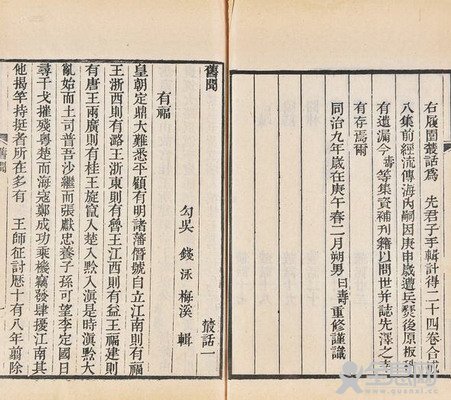 右履園叢話為　先君子手輯計得二十四卷合成
八集前經流傳海內嗣因庚申歲遭兵燹後原板
有遺漏今壽等集資補刊籍以問世并誌先澤之幸
有存焉爾
同治九年歲在庚午春二月朔男曰壽重修謹識
舊聞　叢話一
勾吳　錢泳　梅溪　輯
有福
皇朝定鼎大難悉平顧有明諸藩僭號自立江南則有福
王浙西則有潞王浙東則有魯王江西則有益王福建則
有唐王兩廣則有桂王旋竄入楚入黔入滇是時滇黔大
亂始而土司普吾沙繼而張獻忠養子孫可望李定國日
尋干戈摧殘粵楚而海寇鄭成功乘機竊發肆擾江南其
他揭竿持挺者所在多有　王師征討歷十有八年翦除
舊聞